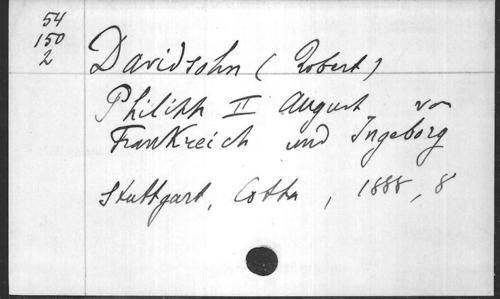 54
150
2
Davidsohn (Robert)
Philipp II August von
Frankreich und Ingeborg
Stuttgart, Cotta, 1888, 8